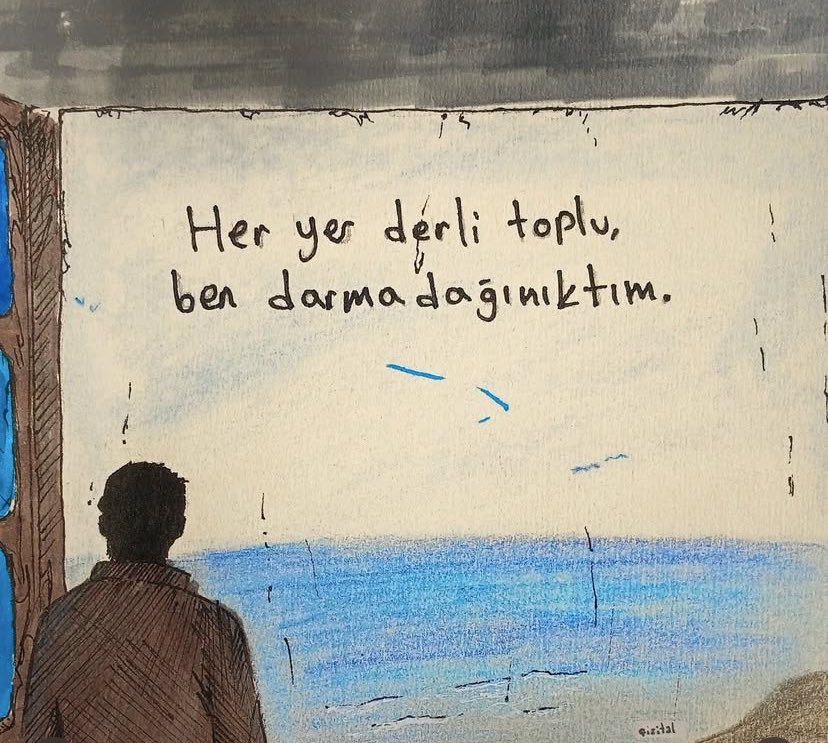 Her yer derli toplu,
ben darmadağınıktım.
çizital